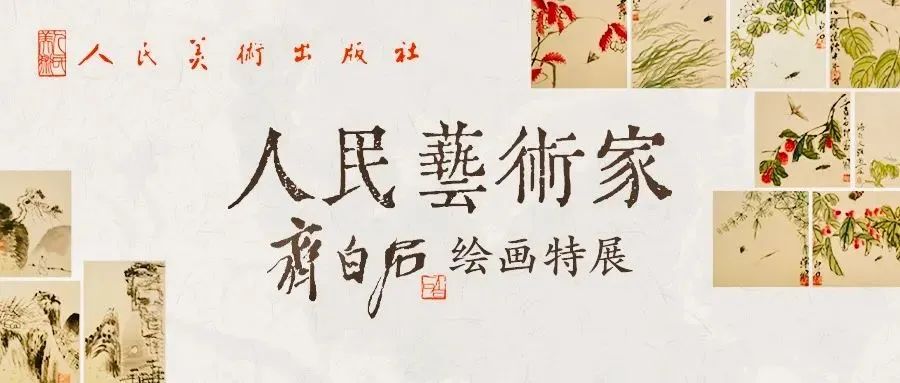 人民美術出版社
人民藝術家
齊白石绘画特展